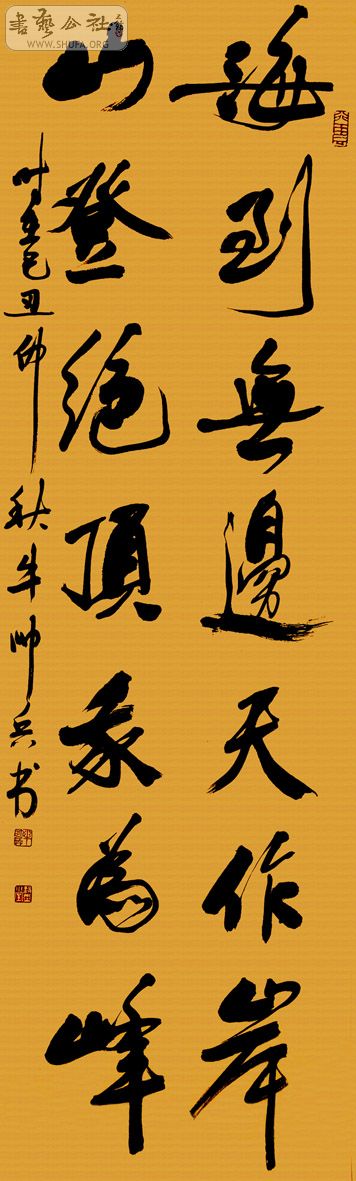 海到無邊天作岸
山登絕頂我為峰
時在己丑仲秋牛帥兵书
書藝公社
WWW.SHUFA.ORG